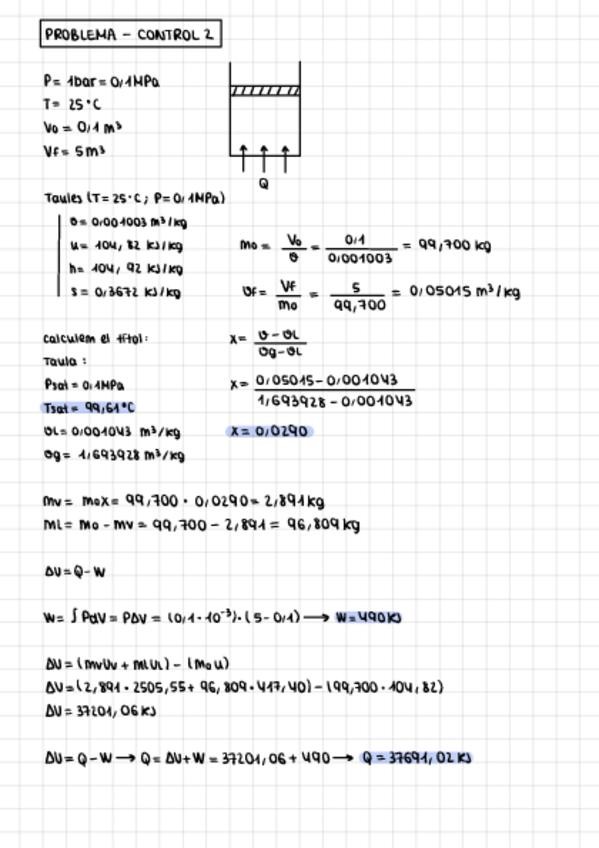 PROBLEMA - CONTROL 2
P = 1bar = 0,1MPa
T = 25°C
Vo = 0,1 m³
Vf = 5m³
Q
Taules (T=25°C; P=0,1MPa)
υ = 0,001003 m³/kg
u = 104,82 kJ/kg
h = 104,92 kJ/kg
s = 0,3672 kJ/kg
mo = Vo/υ = 0,1/0,001003 = 99,700 kg
υf = Vf/mo = 5/99,700 = 0,05015 m³/kg
calculem el títol:
x = υ-υL/υg-υL
Taula:
Psat = 0,1MPa
x = 0,05015-0,001043/1,693928-0,001043
Tsat = 99,61°C
υL = 0,001043 m³/kg
x = 0,0290
υg = 1,693928 m³/kg
mv = mox = 99,700 · 0,0290 = 2,891kg
mL = mo - mv = 99,700 - 2,891 = 96,809kg
ΔU = Q-W
W = ∫PdV = PΔV = (0,1·10⁻³)·(5-0,1) → W=490KJ
ΔU = (mvUv + mLUL) - (mou)
ΔU = (2,891·2505,55 + 96,809·417,40) - (99,700·104,82)
ΔU = 37201,06KJ
ΔU = Q-W → Q = ΔU+W = 37201,06 + 490 → Q = 37691,02 KJ